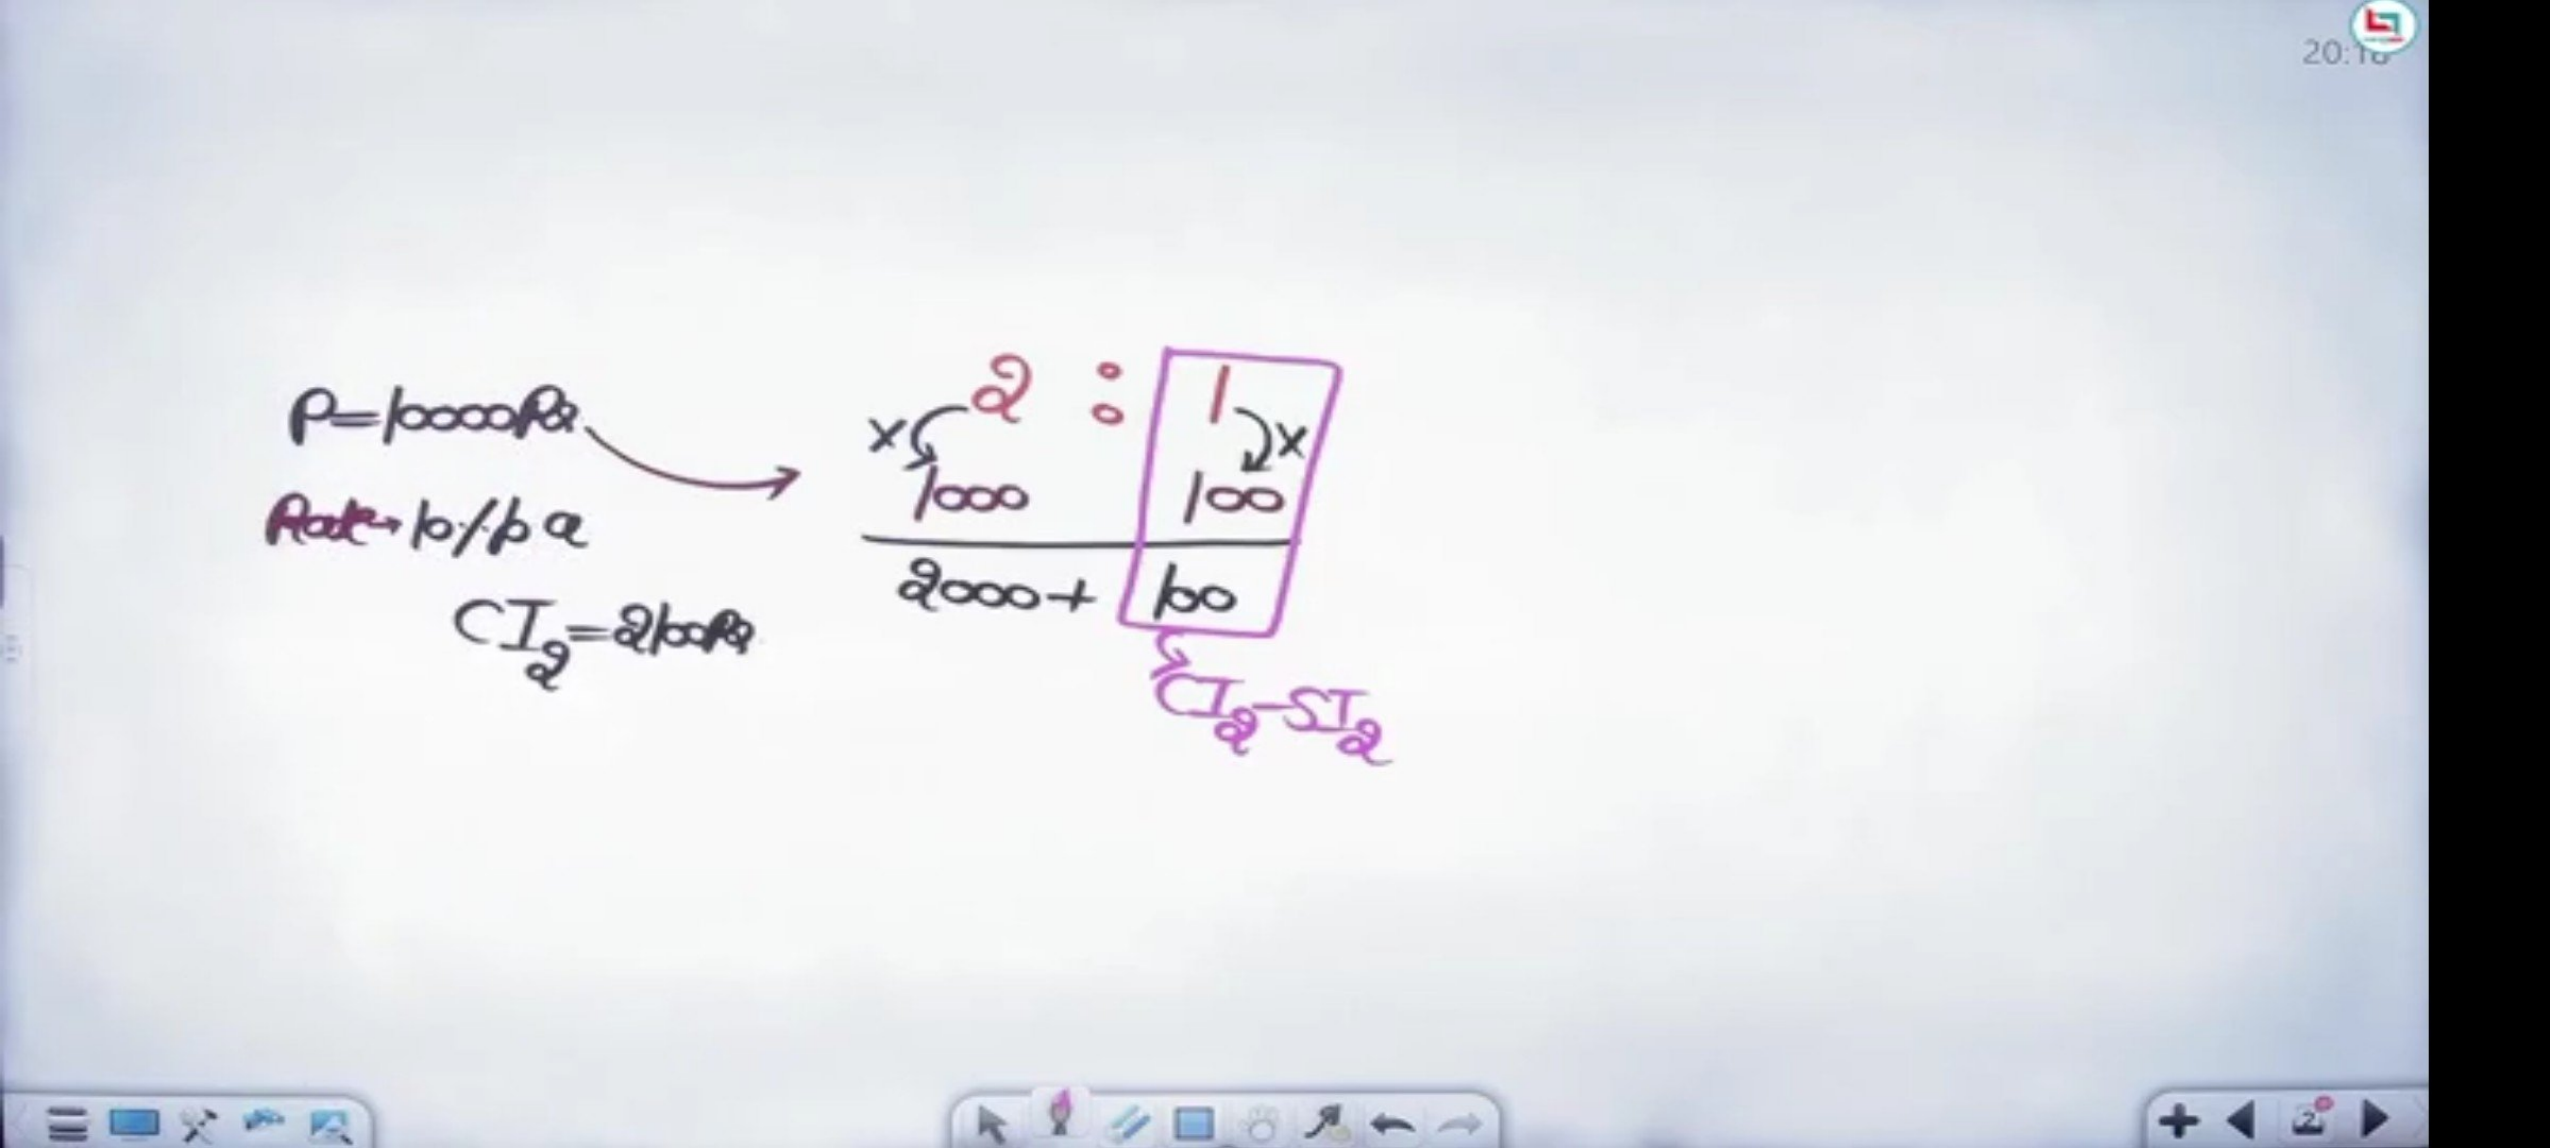 20:18
P=10000Rs
Rate→10%p a
CI₂=2100Rs
2 : 1
× ×
1000 100
2000+ 100
CI₂-SI₂
2